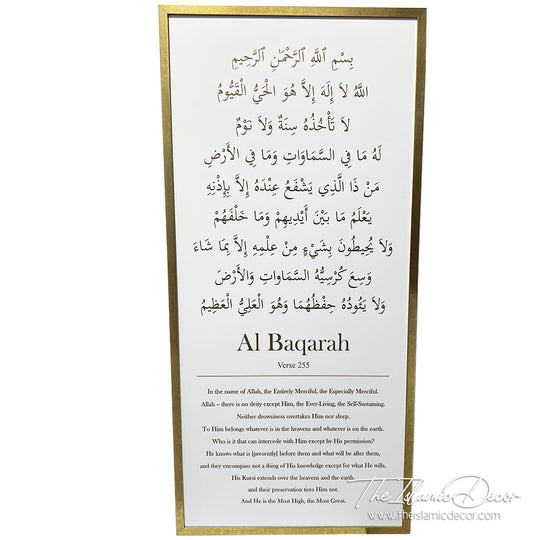 بِسْمِ ٱللَّهِ ٱلرَّحْمَٰنِ ٱلرَّحِيمِ
اللَّهُ لاَ إِلَهَ إِلاَّ هُوَ الْحَيُّ الْقَيُّومُ
لاَ تَأْخُذُهُ سِنَةٌ وَلاَ نَوْمٌ
لَهُ مَا فِي السَّمَاوَاتِ وَمَا فِي الأَرْضِ
مَنْ ذَا الَّذِي يَشْفَعُ عِنْدَهُ إِلاَّ بِإِذْنِهِ
يَعْلَمُ مَا بَيْنَ أَيْدِيهِمْ وَمَا خَلْفَهُمْ
وَلاَ يُحِيطُونَ بِشَيْءٍ مِنْ عِلْمِهِ إِلاَّ بِمَا شَاءَ
وَسِعَ كُرْسِيُّهُ السَّمَاواتِ وَالأَرْضَ
وَلاَ يَئُودُهُ حِفْظُهُمَا وَهُوَ الْعَلِيُّ الْعَظِيمُ
Al Baqarah
Verse 255
In the name of Allah, the Entirely Merciful, the Especially Merciful.
Allah – there is no deity except Him, the Ever-Living, the Self-Sustaining.
Neither drowsiness overtakes Him nor sleep.
To Him belongs whatever is in the heavens and whatever is on the earth.
Who is it that can intercede with Him except by His permission?
He knows what is [presently] before them and what will be after them,
and they encompass not a thing of His knowledge except for what He wills.
His Kursi extends over the heavens and the earth,
and their preservation tires Him not.
And He is the Most High, the Most Great.
The Islamic Decor
www.theislamicdecor.com